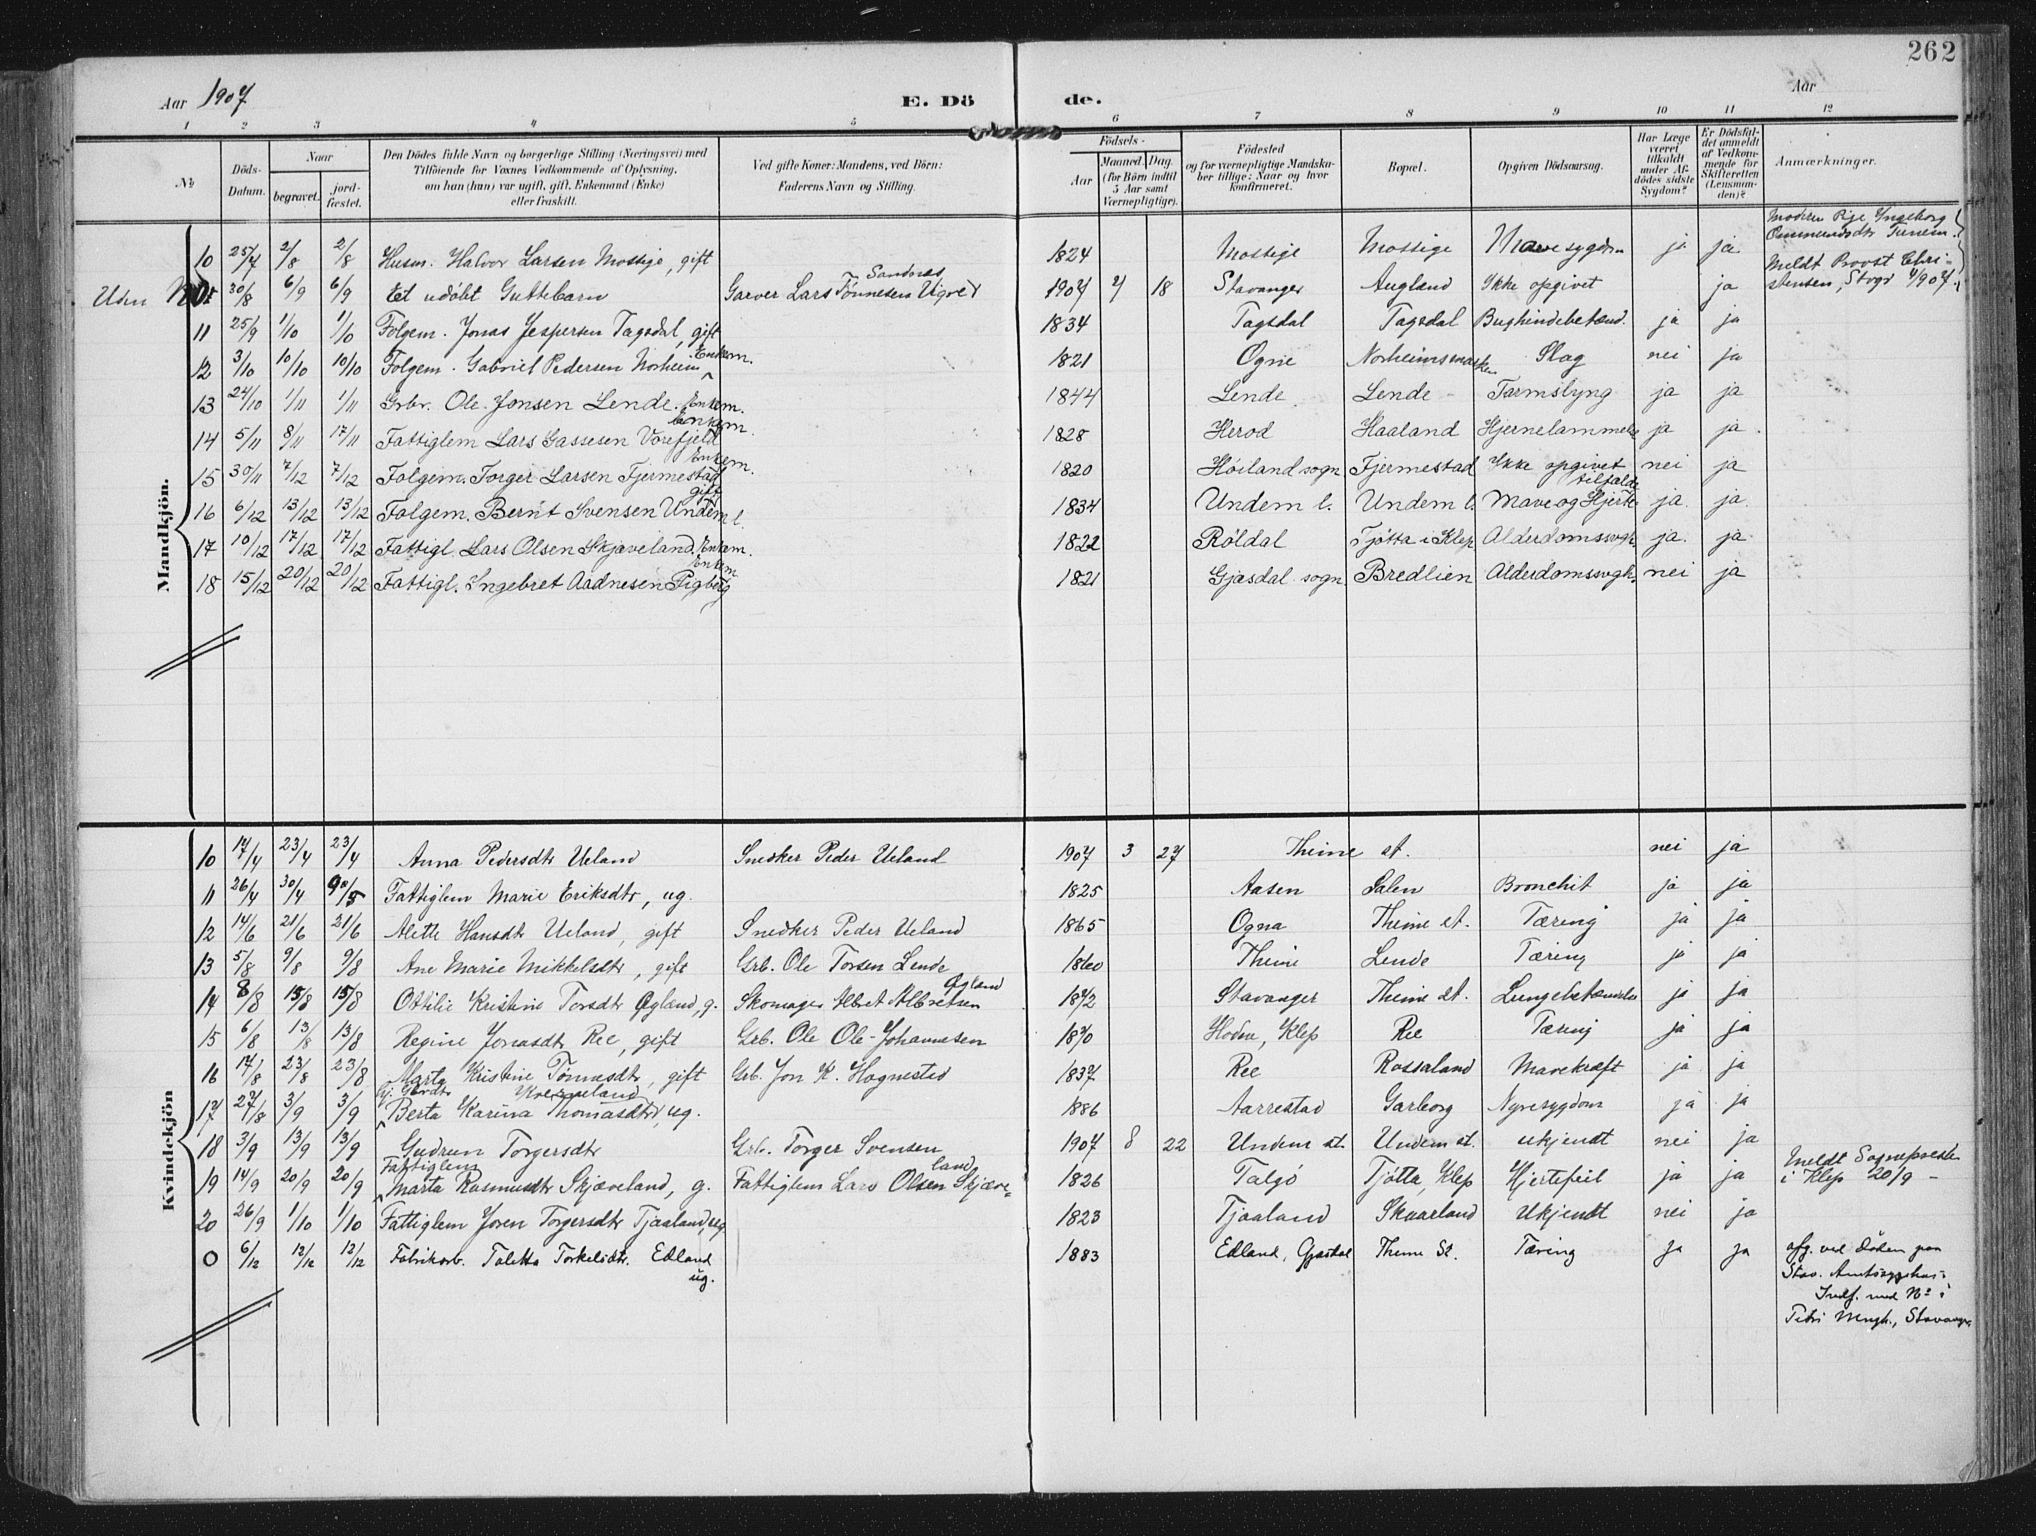 262
Aar 1907
E. Dö
de.
Aar
1 2 3 4 5 6 7 8 9 10 11 12
No
Döds-Datum.
Naar
begravet.
jord-fæstet.
Den Dödes fulde Navn og borgerlige Stilling (Næringsvei) med
Tilföiende for Voxnes Vedkommende af Oplysning,
om han (hun) var ugift, gift, Enkemand (Enke)
eller fraskilt.
Ved gifte Koner: Mandens, ved Börn:
Faderens Navn og Stilling.
Födsels-
Aar
Maaned. Dag.
(for Börn indtil
5 Aar samt
Værnepligtige).
Födested
og for værnepligtige Mandska-
ber tillige: Naar og hvor
konfirmeret.
Bopæl.
Opgiven Dödsaarsag.
Har Læge
været
tilkaldt
under Af-
dödes sidste
Sygdom?
Er Dödsfal-
det anmeldt
af Vedkom-
mende for
Skifteretten
(Lensman-
den)?
Anmærkninger.
Mandkjön.
10 25/7 2/8 2/8 Husm. Halvor Larsen Mossige, gift 1824 Mossige Mossige Mavesygdom ja ja
Moderen Pige Ingeborg
Ommundsdtr Tunem.
Meldt Provst Chri-
stensen, Stvgr 4/907.
Uden No 30/8 6/9 6/9 Et udöbt Guttebarn Garver Lars Tönnesen Vigre Sandnes 1907 7 18 Stavanger Augland Ikke opgivet ja
11 25/9 1/10 1/10 Folgem. Jonas Jespersen Tagsdal, gift 1834 Tagsdal Tagsdal Bughindebetænd. ja ja
12 3/10 10/10 10/10 Folgem. Gabriel Pedersen Norheim Enkem. 1821 Ogne Norheimsmarken Slag nei ja
13 24/10 1/11 1/11 Grbr. Ole Jonsen Lende. Enkem. 1844 Lende Lende Tarmslyng ja ja
14 5/11 8/11 17/11 Fattiglem Lars Gassesen Vorefjeld Enkem. 1828 Herod Haaland Hjernelammelse ja ja.
15 30/11 7/12 7/12 Folgem. Torger Larsen Tjermestad Enkem. 1820 Höiland sogn Tjermestad Ikke opgivet nei ja
16 6/12 13/12 13/12 Folgem. Bernt Svensen Undem l. gift 1834 Undem l. Undem l. Mave og Hjerte tilfælde ja ja.
17 10/12 17/12 17/12 Fattigl. Lars Olsen Skjæveland. Enkem. 1822 Röldal Tjötta i Klep Alderdomssvgh. ja. ja.
18 15/12 20/12 20/12 Fattigl. Ingebret Aadnesen Tigberg Enkem 1821 Gjæsdal sogn Bredlien Alderdomssvgh. nei ja
Kvindekjön
10 17/4 23/4 23/4 Anna Pedersdtr Ueland Snedker Peder Ueland 1907 3 27 Thime st. nei ja
11 26/4 30/4 Fattiglem Marie Eriksdtr, ug. 1825 Aasen Salen Bronchit ja ja
12 14/6 21/6 21/6 Alette Hansdtr Ueland, gift Snedker Peder Ueland 1865 Ogna Thime st. Tæring ja ja
13 5/8 9/8 9/8 Ane Marie Mikkelsdtr, gift Grb. Ole Torsen Lende 1860 Thime Lende Tæring ja ja
14 8/8 15/8 15/8 Ottilie Kristine Torsdtr Øgland, g. Skomager Albret Albretsen Øgland 1872 Stavanger Thime st. Lungebetændelse ja ja
15 6/8 13/8 13/8 Regine Jonasdtr Ree, gift Grb. Ole Ole-Johannesen 1870 Hodne, Klep Ree Tæring ja ja
16 17/8 23/8 23/8 Marta Kristine Tönnesdtr, gift Grb. Jon K. Hognestad 1837 Ree Rosseland Mavekræft ja ja
17 27/8 3/9 3/9 Berta Karina Thomasdtr Kverneland, ug. 1886 Aarrestad Garborg Nyresygdom ja ja
18 3/9 13/9 13/9 Gudrun Torgersdtr Grb. Torger Svensen 1907 8 22 Undem st. Undem st. ukjendt nei ja
19 14/9 20/9 20/9 Fattiglem Marta Rasmusdtr Skjæveland, g. Fattiglem Lars Olsen Skjæve=land 1826 Talgö Tjötta, Klep Hjertefeil ja ja Meldt Sognepresten i Klep 20/9 -
20 26/9 1/10 1/10 Fattiglem Joren Torgersdtr Tjaaland, ug. 1823 Tjaaland Skaarland Ukjendt nei ja
0 6/12 12/12 12/12 Fabrikarb. Taletta Torkelsdtr. Edland ug. 1883 Edland, Gjæsdal Thime St. Tæring ja ja
afg. ved Döden paa
Stav. Amtssygehus.
Indf. med No i
Petri Mengh., Stavanger